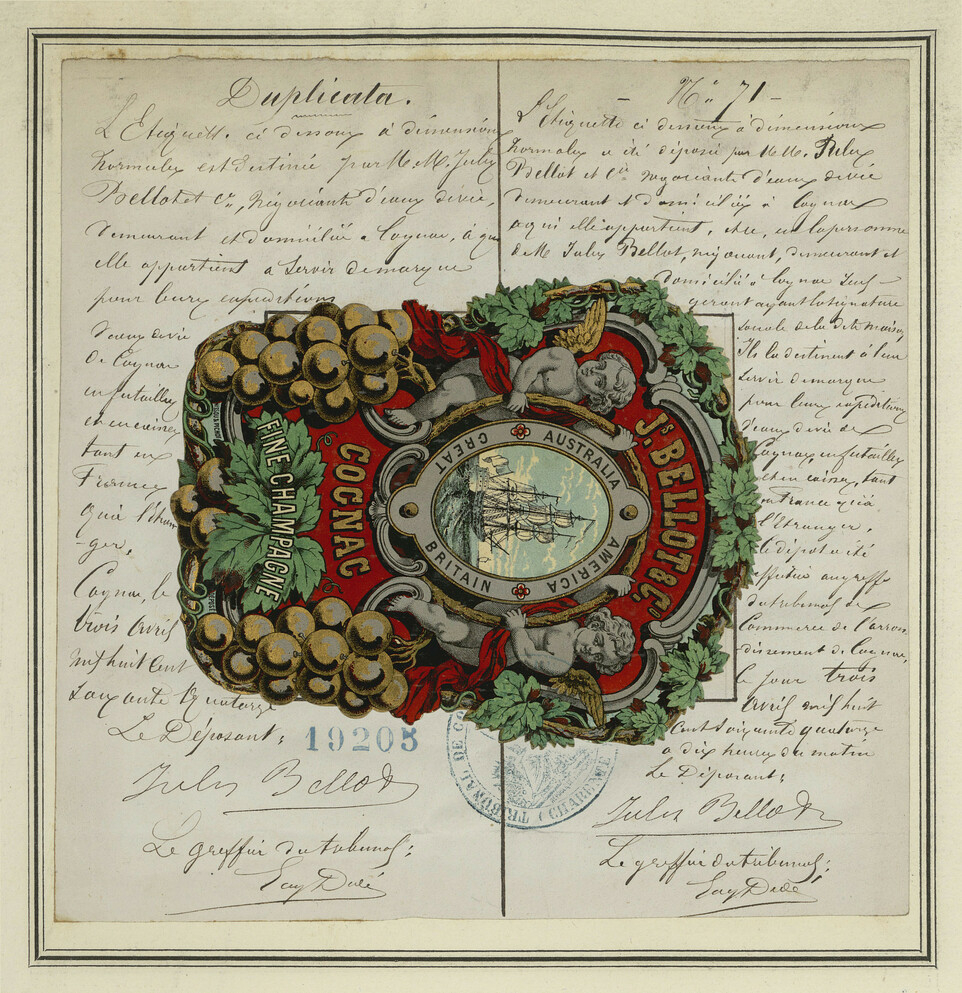 Duplicata.
L'Etiquette ci dessous à dimensions
normales est destiné par M. M. Jules
Bellot et Cie, Négociants d'eaux de vie,
demeurant et domicilié à Cognac, à qui
elle appartient à servir de marque
pour leurs expeditions
d'eaux de vie
de Cognac
en futailles
et en caisses
tant en
France
qu'à l'étran-
ger,
Cognac, le
trois Avril
mil huit cent
soixante quatorze
Le Déposant;
19205
Jules Bellot
Le greffier du tribunal;
N° 71
L'Etiquette ci dessous à dimensions
normales a été déposé par M. M. Jules
Bellot et Cie négociants d'eaux de vie
demeurant et domiciliés à Cognac
à qui elle appartient, en la personne
de M. Jules Bellot, négociant, demeurant et
domicilié à Cognac seul
gerant ayant la signature
sociale de la dite maison
Ils la destinent à leur
servir de marque
pour leurs expeditions
d'eaux de vie de
Cognac en futailles
et en caisses, tant
en France qu'à
l'étranger,
Le dépôt a été
effectué au greffe
du tribunal de
Commerce de l'arron-
dissement de Cognac,
le jour trois
Avril mil huit
cent soixante quatorze
à dix heures du matin
Le Déposant;
Jules Bellot
Le greffier du tribunal;
Js. BELLOT & Co
AUSTRALIA
AMERICA
GREAT BRITAIN
COGNAC
FINE CHAMPAGNE
TRIBUNAL DE
CHARENTE